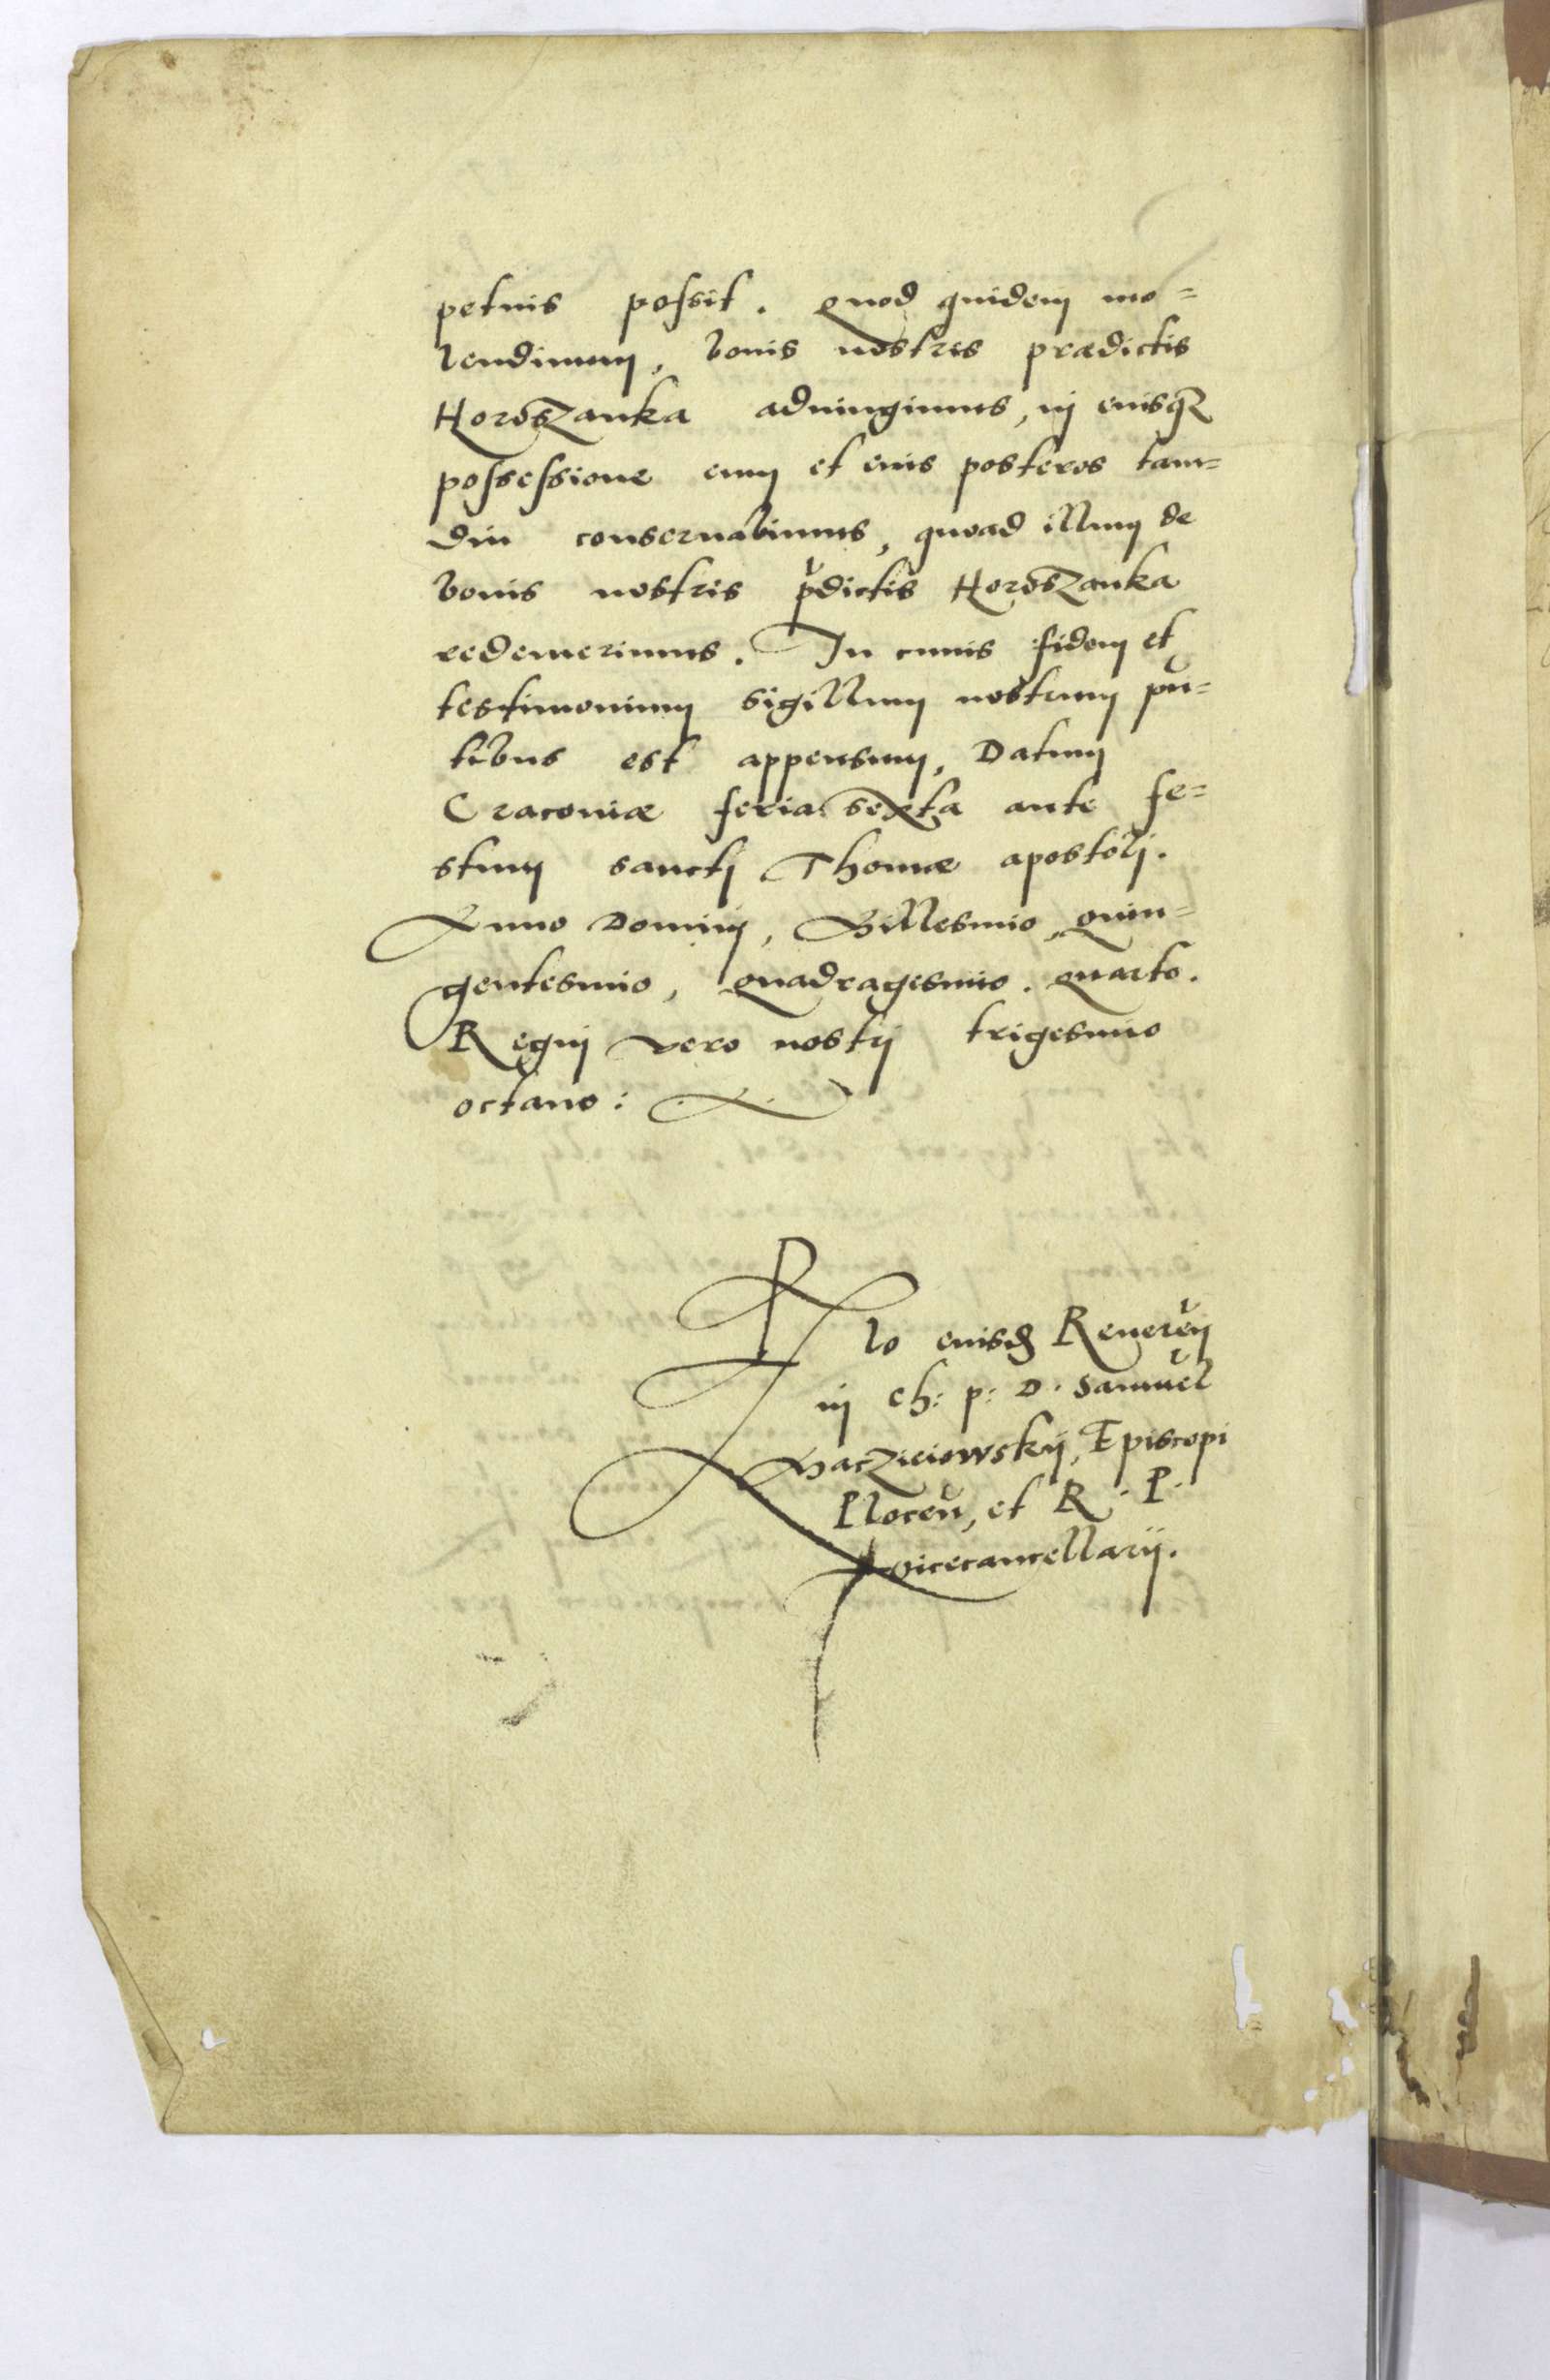 petuis possit. Quod quidem mo=
lendinum, bonis nostris prædictis
Horoszanka adiungimus, in eiusq3
possessione eum et eius posteros tam=
diu conseruabimus, quoad illum de
bonis nostris p̆dictis Horoszanka
redemerimus. In cuius fidem et
testimonium sigillum nostrum pñ=
tibus est appensum, Datum
Cracoviæ feria sexta ante fe=
stum sancti Thomæ apostoli.
Anno Domini, Millesimo, quin=
gentesimo, quadragesimo. quarto.
Regni vero nostri trigesimo
octauo:
Rlo eiusd Reueren
in Ch: p: D. Samuel
Maczieiowskij, Episcopi
Plocen, et R. P.
vicecancellarij.